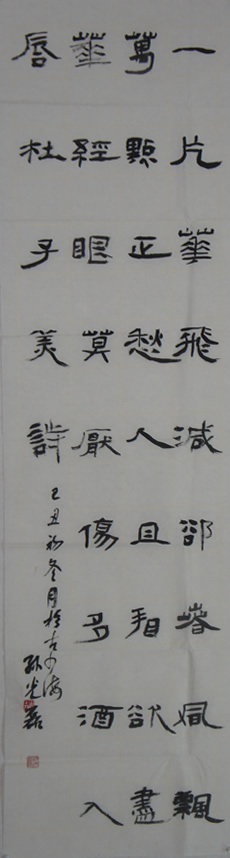 一片華飛減卻春風飄
萬點正愁人且看欲盡
華經眼莫厭傷多酒入
唇杜子美詩
己丑初冬月於古少海
孙光磊